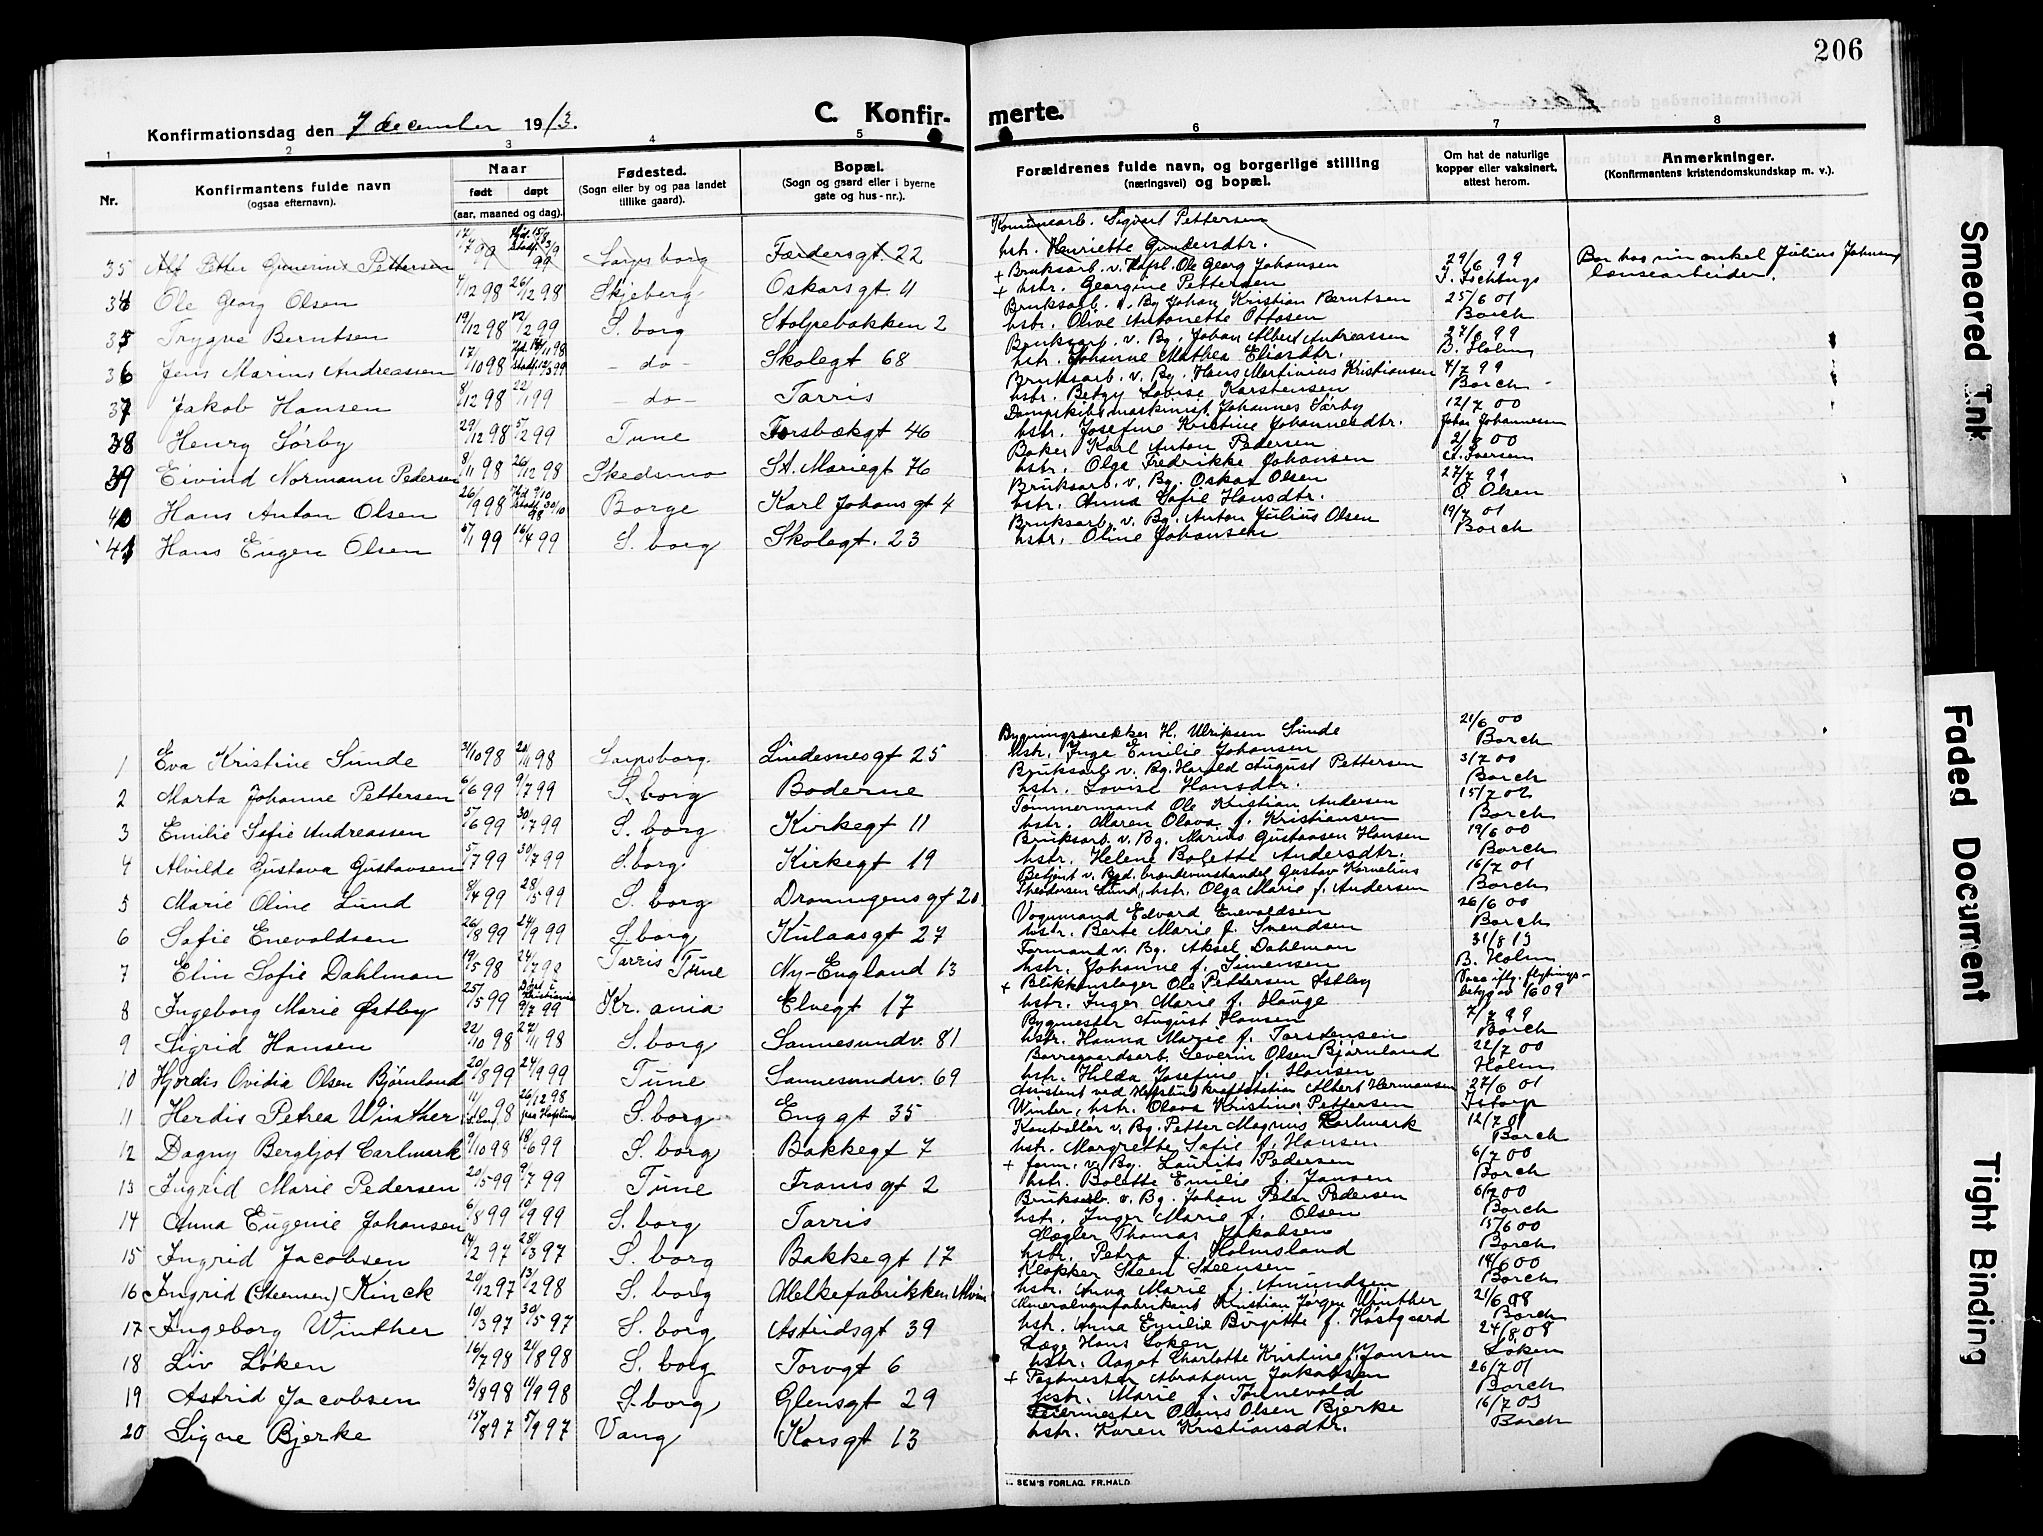 206
Konfirmationsdag den 7 december 1913.
C. Konfirmerte.
1 2 3 4 5 6 7 8
Nr.
Konfirmantens fulde navn
(ogsaa efternavn).
Naar
født døpt
(aar, maaned og dag).
Fødested.
(Sogn eller by og paa landet
tillike gaard).
Bopæl.
(Sogn og gaard eller i byerne
gate og hus-nr.).
Forældrenes fulde navn, og borgerlige stilling
(næringsvei) og bopæl.
Om hat de naturlige
kopper eller vaksinert,
attest herom.
Anmerkninger.
(Konfirmantens kristendomskundskap m. v.).
35 Alf Petter Gunerius Pettersen 17/7 99 Hjd. 15/8 stadf. 3/9 99 Sarpsborg Færdersgt. 22
Kommunearb. Sigvart Pettersen
hstr. Henriette Gundersdtr.
34 Ole Georg Olsen 4/12 98 26/12 98 Skjeberg Oskarsgt. 11
+ Bruksarb. v. Hafsl. Ole Georg Johansen 29/6 99
+ hstr. Georgine Pettersen
Bor hos sin onkel Julius Johnsen
lensearbeider.
35 Trygve Berntsen 19/12 98 12/2 99 S. borg Stolpebakken 2
Bruksarb. v. Bg Johan Kristian Berntsen 25/6 01
hstr. Olive Antonette Ottosen Borch
36 Jens Marius Andreassen 17/10 98 Hjd. 18/11 98 stadf. 12/3 99 - do - Skolegt 68
Bruksarb. v. Bg. Johan Albert Andreassen 27/6 99
hstr. Johanne Mathea Eliasdtr. B. Holm
37 Jakob Hansen 8/12 98 22/1 99 - do - Tarris
Bruksarb. v. Bg. Hans Martinius Kristiansen 4/7 99
hstr. Betzy Lovise Karstensen Borch
38 Henry Sørby 29/12 98 5/2 99 Tune Forsbækgt 46
Dampskibsmaskinist Johannes Sørby 12/7 00
hstr. Josefine Kristine Johannesdtr. Johan Johannesen
39 Eivind Normann Pedersen 8/11 98 26/12 98 Skedsmo St. Mariegt 76
Baker Karl Anton Pedersen 2/8 00
hstr. Olga Fredrikke Johansen Iversen
40 Hans Anton Olsen 26/9 98 Hjd 9/10 stadf. 30/10 98 Borge Karl Johans gt 4
Bruksarb. v. Bg. Oskar Olsen 27/7 99
hstr. Anna Sofie Hansdtr. O. Olsen
41 Hans Eugen Olsen 5/1 99 16/4 99 S. borg Skolegt. 23
Bruksarb. v. Bg. Anton Julius Olsen 19/7 01
hstr. Oline Johansen Borch
1 Eva Kristine Sunde 31/10 98 20/11 98 Sarpsborg. Lindesnesgt 25
Bygningssnekker H. Ulriksen Sunde 21/6 00
hstr. Inga Emilie Johansen Borch
2 Marta Johanne Pettersen 6/6 99 9/7 99 S. borg Boderne
Bruksarb v. Bg. Harald August Pettersen 3/7 00
hstr. Lovise Hansdtr. Borch
3 Emilie Sofie Andreassen 5/6 99 30/7 99 S. borg Kirkegt 11
Tømmermand Ole Kristian Andersen 15/7 02
hstr. Maren Olava f. Kristiansen Borch
4 Alvilde Gustava Gustavsen 5/7 99 30/7 99 S. borg. Kirkegt 19
Bruksarb. v. Bg. Marius Gustavsen Hansen 19/6 00
hstr. Helene Bolette Andersdtr. Borch
5 Marie Oline Lund 8/4 99 28/5 99 S. borg Dronningensgt 20
Betjent v. Byd. brændevinshandel Gustav Kornelius 16/7 01
Theodorsen Lund, hstr. Olga Marie f. Andersen Borch
6 Sofie Enevoldsen 26/8 99 24/9 99 S. borg Kulaasgt 27
Vognmand Edvard Enevoldsen 26/6 00
hstr. Berte Marie f. Svendsen Borch
7 Elin Sofie Dahlman 19/5 98 24/7 98 Tarris Tune Ny-England 13
Formand v. Bg. Aksel Dahlman 31/8 13
hstr. Johanne f. Simensen B. Holm
8 Ingeborg Marie Østby 25/5 99 Døpt i Kristiania 9/7 99 Kr. ania Elvegt 17
+ Blikkenslager Ole Pettersen Østby Vacc. iflg. flytnings-
hstr. Inger Marie f. Hauge betyg av 1609
9 Sigrid Hansen 22/10 98 27/11 98 S. borg Sannesundv. 81
Bygmester August Hansen 7/7 99
hstr. Hanna Marie f. Torstensen Borch
10 Hjørdis Ovidia Olsen Bjørnland 20/8 99 24/9 99 Tune Sannesundsv. 69
Borregaardsarb. Severin Olsen Bjørnland 22/7 00
hstr. Hilda Josefine f. Hansen Holm
11 Herdis Petrea Winther 11/10 98 26/12 98 S. borg Enggt 35
Assistent ved Hafslunds kraftstation Albert Hermansen 27/6 01
Winter, hstr. Olava Kristine Pettersen
12 Dagny Bergljot Carlmark 9/10 98 18/6 99 S. borg Bakkegt 7
Kontrollør v. Bg. Petter Magnus Carlmark 12/7 01
hstr. Margrethe Sofie f. Hansen Borch
13 Ingrid Marie Pedersen 20/5 99 9/7 99 Tune Framsgt 2
+ form. v. Bg. Laurits Pedersen 6/7 00
hstr. Bolette Emilie f. Jansen Borch
14 Anna Eugenie Johansen 6/8 99 10/9 99 S. borg Tarris
Bruksarb. v. Bg. Johan Peter Pedersen 6/7 00
hstr. Inger Marie f. Olsen Borch
15 Ingrid Jacobsen 14/2 97 28/3 97 S. borg Bakkegt 17
Mægler Thomas Jakobsen 15/6 00
hstr. Petra f. Holmsland Borch
16 Ingrid (Steensen) Kinck 20/12 97 13/2 98 S. borg Melkefabrikken Alvim
Klokker Steen Steensen 14/6 00
hstr. Anna Marie f. Amundsen Borch
17 Ingeborg Winther 10/3 97 30/5 97 S. borg Astridsgt 39
Mineralvandfabrikant Kristian Jørgen Winther 21/6 08
hstr. Anna Emilie Birgitte f. Høstgaard Borch
18 Liv Løken 16/7 98 21/8 98 S. borg Torvgt 6
Læge Hans Løken 24/8 08
hstr. Aagot Charlotte Kristine f. Jansen Løken
19 Astrid Jacobsen 3/8 98 11/9 98 S. borg Glensgt 29
+ Abraham Jakobsen 26/7 01
hstr. Marie f. Tønnevold Borch
20 Signe Bjerke 15/8 97 5/9 97 Vang Korsgt 13
Feiermester Olaus Olsen Bjerke 16/7 03
hstr. Karen Kristiansdtr. Borch
SEM'S FORLAG. FR. HALD.
Smeared Ink
Faded Document
Tight Binding